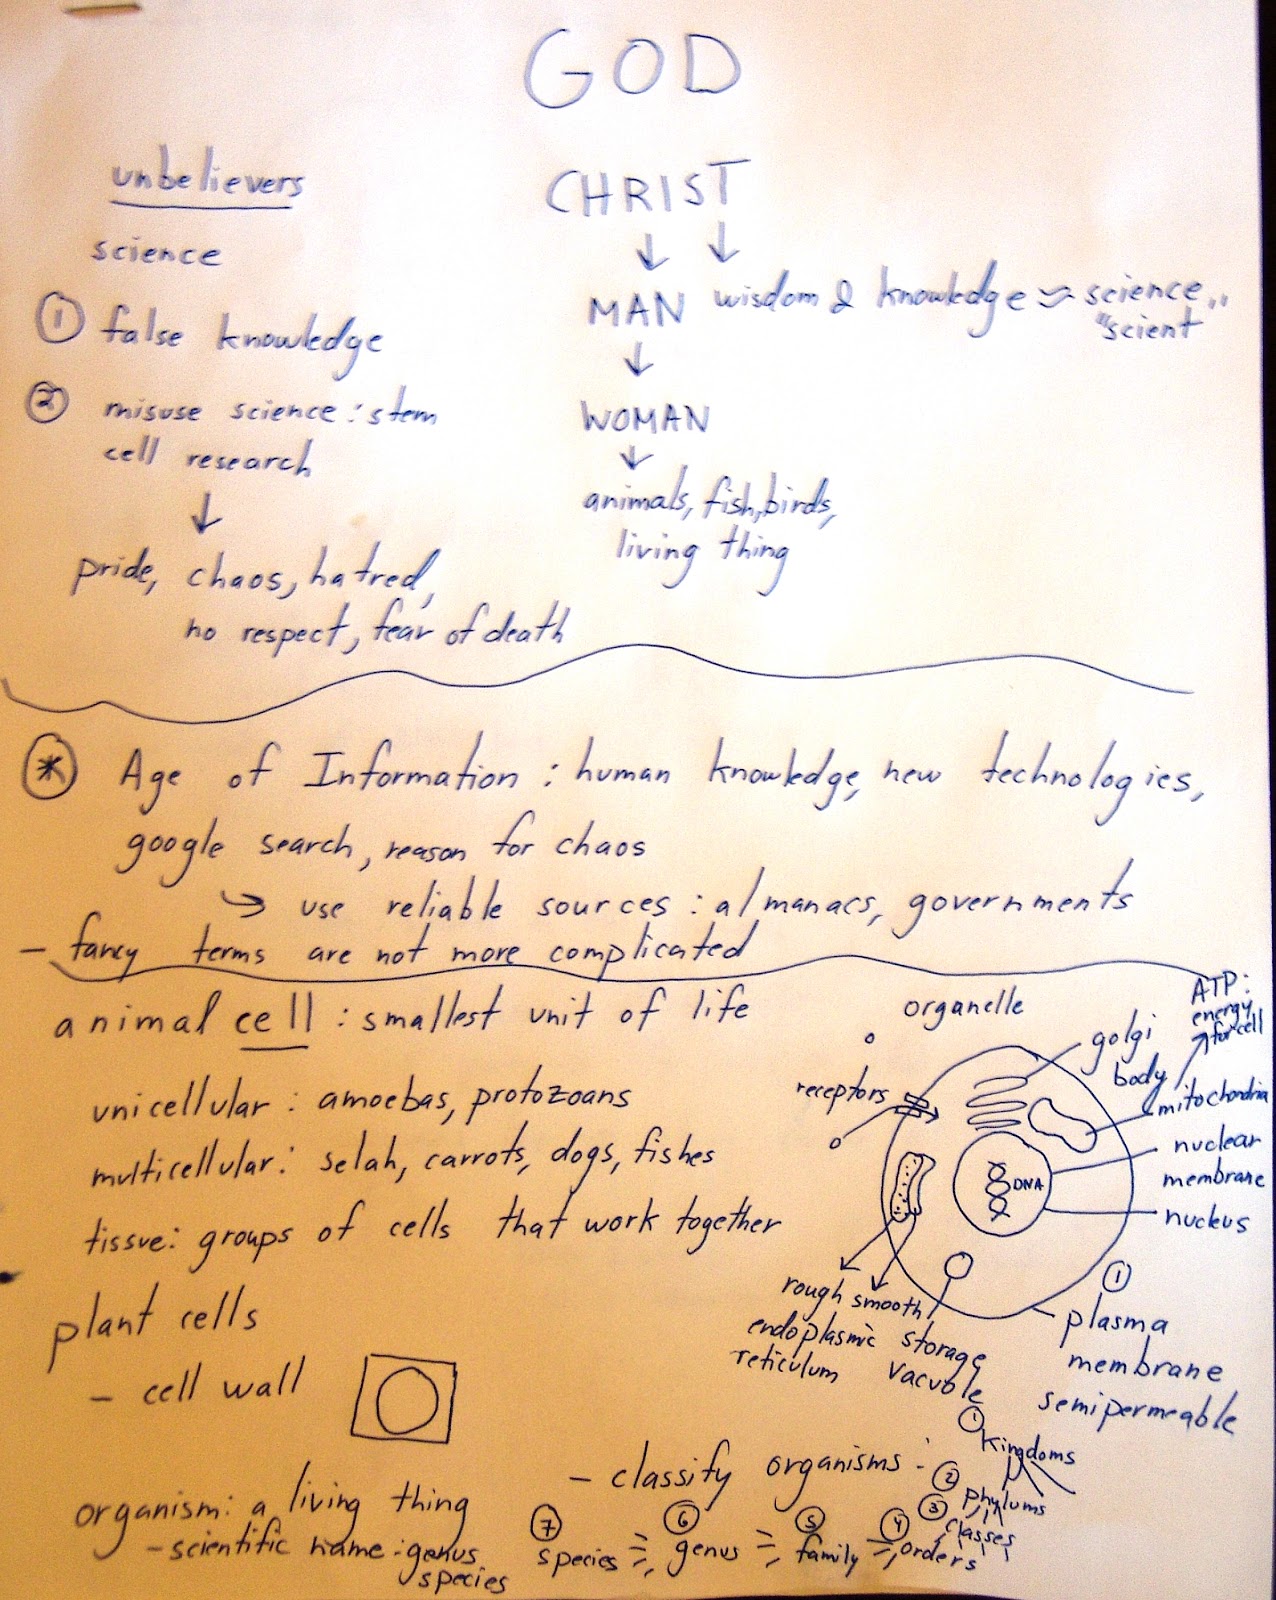 GOD
unbelievers
CHRIST
science
↓ ↓
① false knowledge
MAN wisdom & knowledge ≈ science
"scient"
↓
② misuse science: stem
cell research
WOMAN
↓
↓
animals, fish, birds,
living thing
pride, chaos, hatred,
no respect, fear of death
* Age of Information: human knowledge, new technologies,
google search, reason for chaos
↳ use reliable sources: almanacs, governments
- fancy terms are not more complicated
animal cell: smallest unit of life
unicellular: amoebas, protozoans
multicellular: selah, carrots, dogs, fishes
tissue: groups of cells that work together
plant cells
- cell wall
organelle
ATP:
energy
for cell
golgi
body
receptors
mitochondria
nuclear
membrane
DNA
nucleus
rough smooth
endoplasmic
reticulum
storage
vacuole
①
plasma
membrane
semipermeable
organism: a living thing
- scientific name: genus
species
- classify organisms:
① kingdoms
② phylums
③ classes
④ orders
⑤ family
⑥ genus
⑦ species